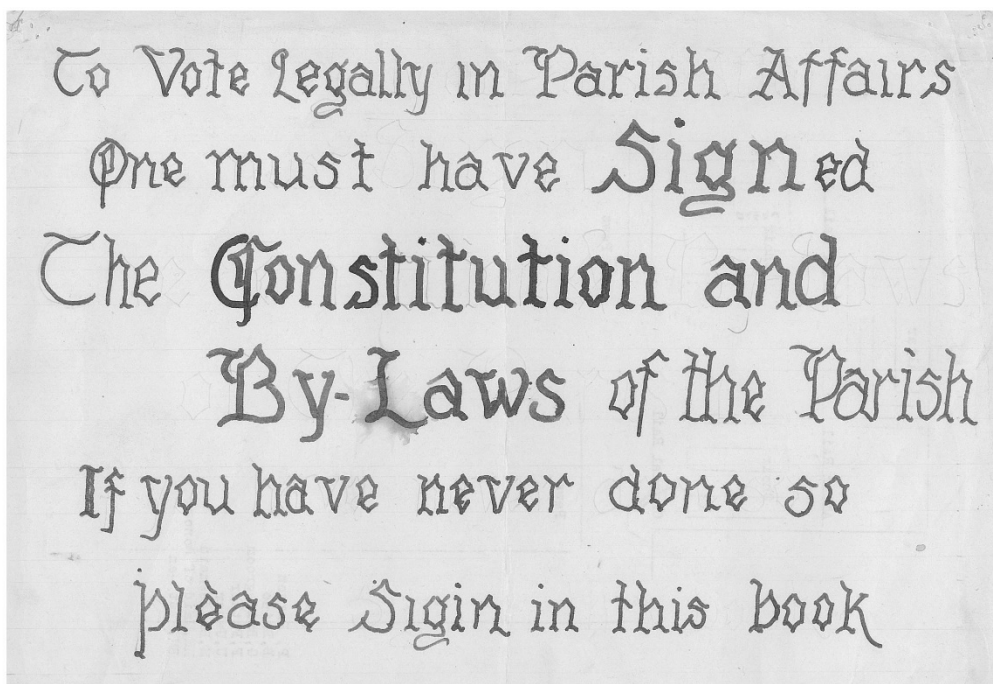 To Vote Legally in Parish Affairs
One must have Signed
The Constitution and
By-Laws of the Parish
If you have never done so
please Sigin in this book